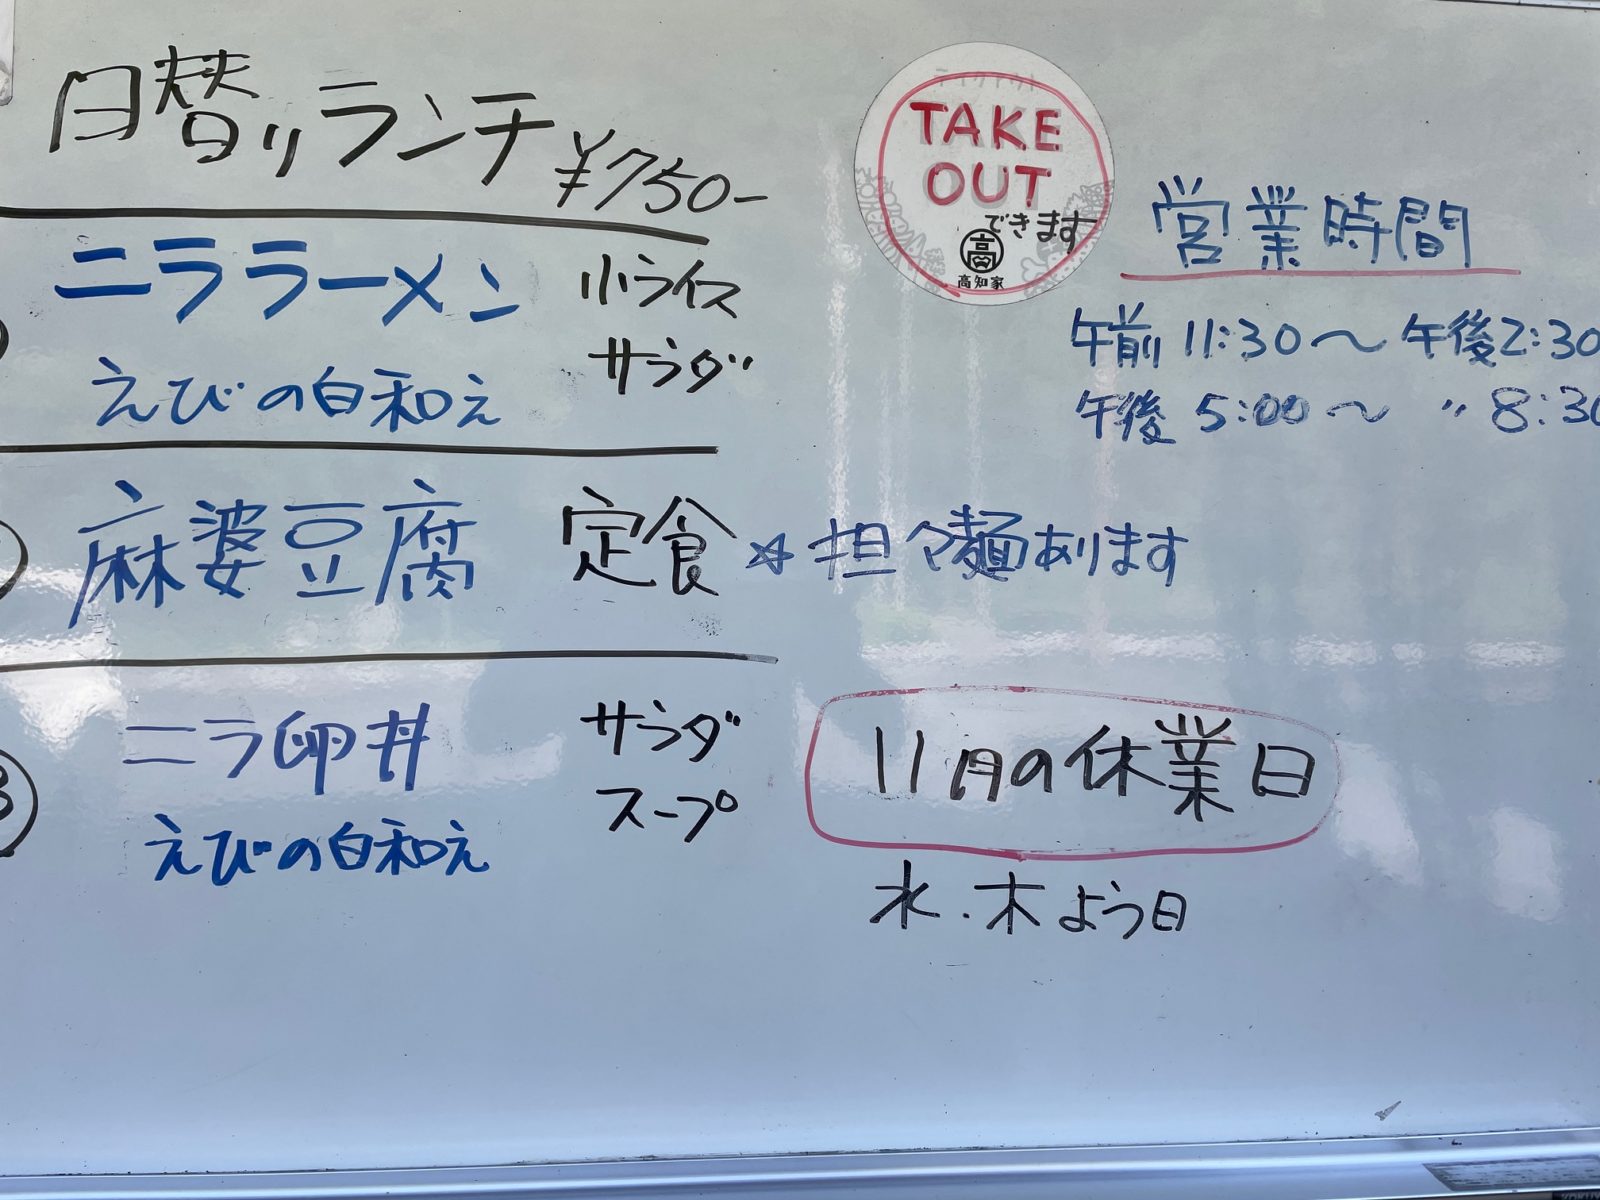 日替りランチ ¥750-
ニララーメン 小ライス
えびの白和え サラダ
麻婆豆腐 定食
☆担々麺あります
3
ニラ卵丼 サラダ
えびの白和え スープ
TAKE
OUT
できます
高
高知家
営業時間
午前 11:30〜午後2:30
午後 5:00〜 〃 8:30
11月の休業日
水・木よう日